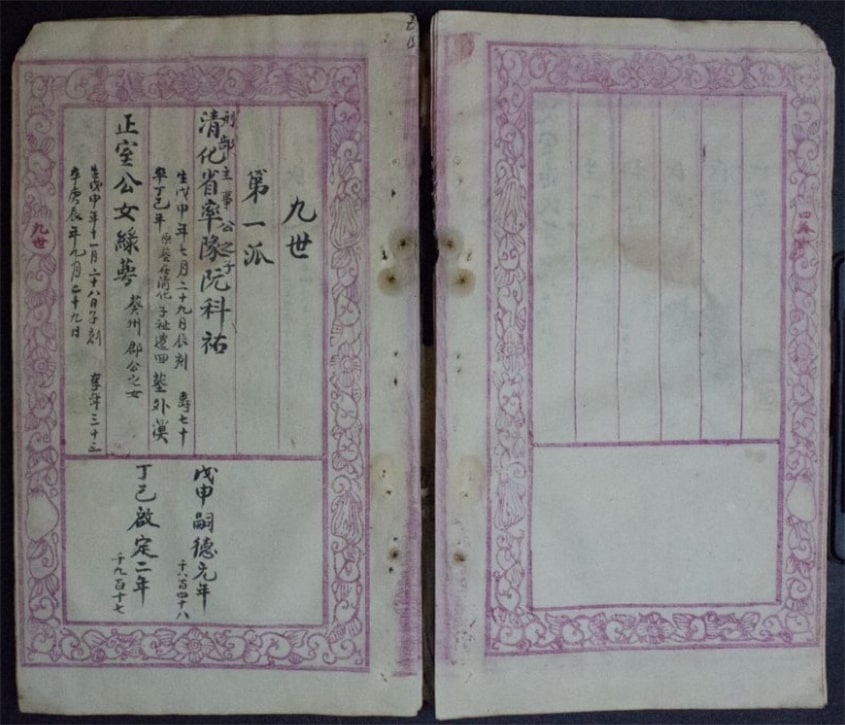 九世
第一派
刑部主事公之子
清化省率隊阮科祐
生戊申年七月二十九日辰刻 壽七十
卒丁巳年 原葬在清化 子祉遷回葬外漠
正室公女綠萼 葵州郡公之女
生戊申年十一月二十八日子刻
卒庚辰年九月二十九日
戊申嗣德元年
千八百四十八
丁巳啟定二年
千九百十七
九世